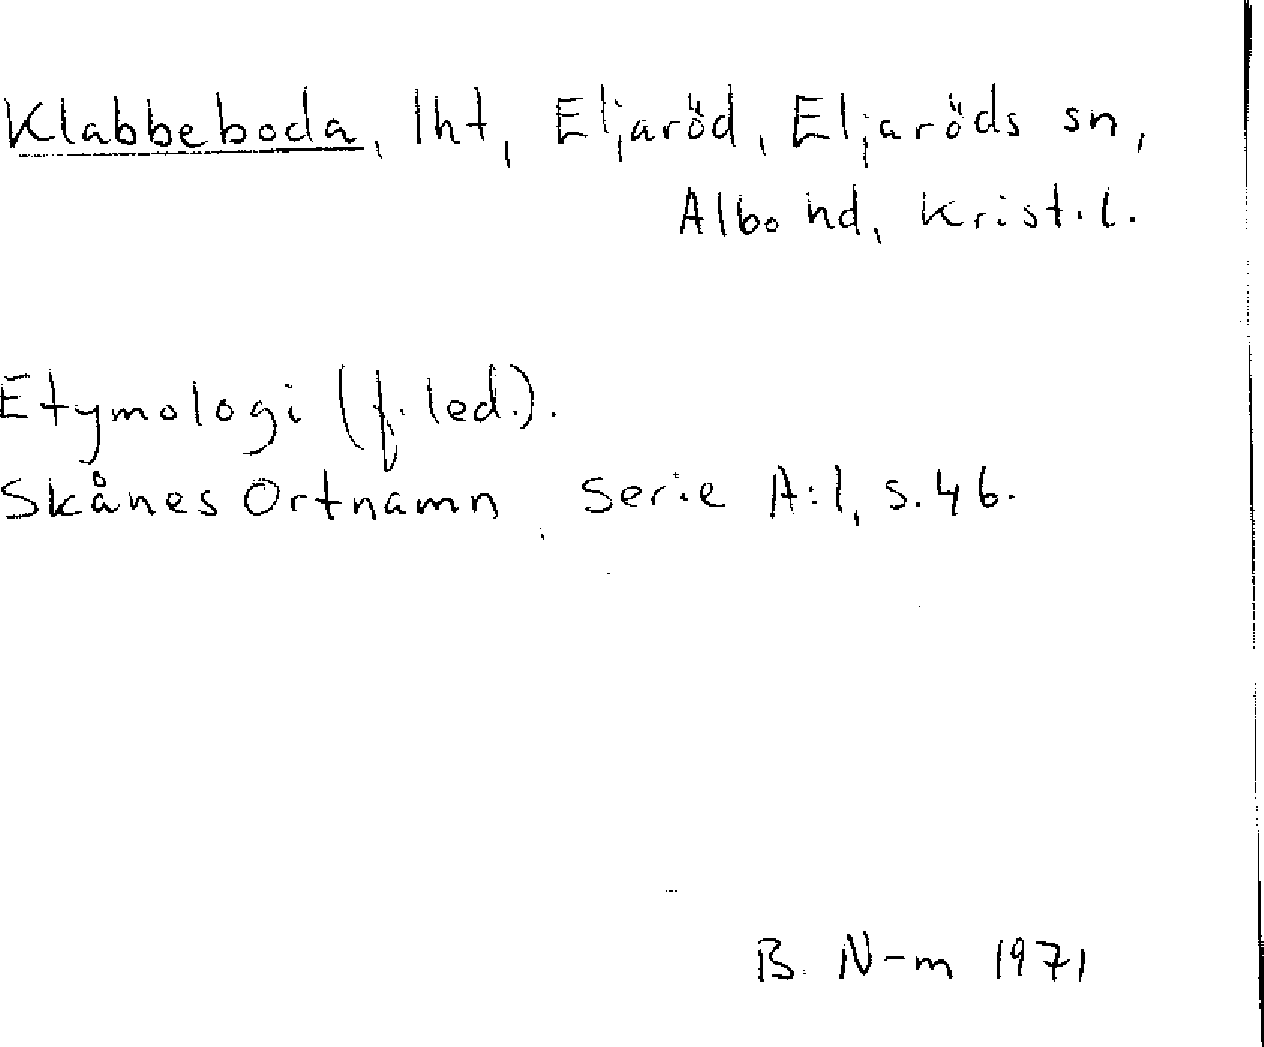 Klabbeboda, lht, Eljaröd, Eljaröds sn,
Albo hd, Krist.l.
Etymologi (f. led.).
Skånes Ortnamn, Serie A:1, s.46.
B. N-m 1971